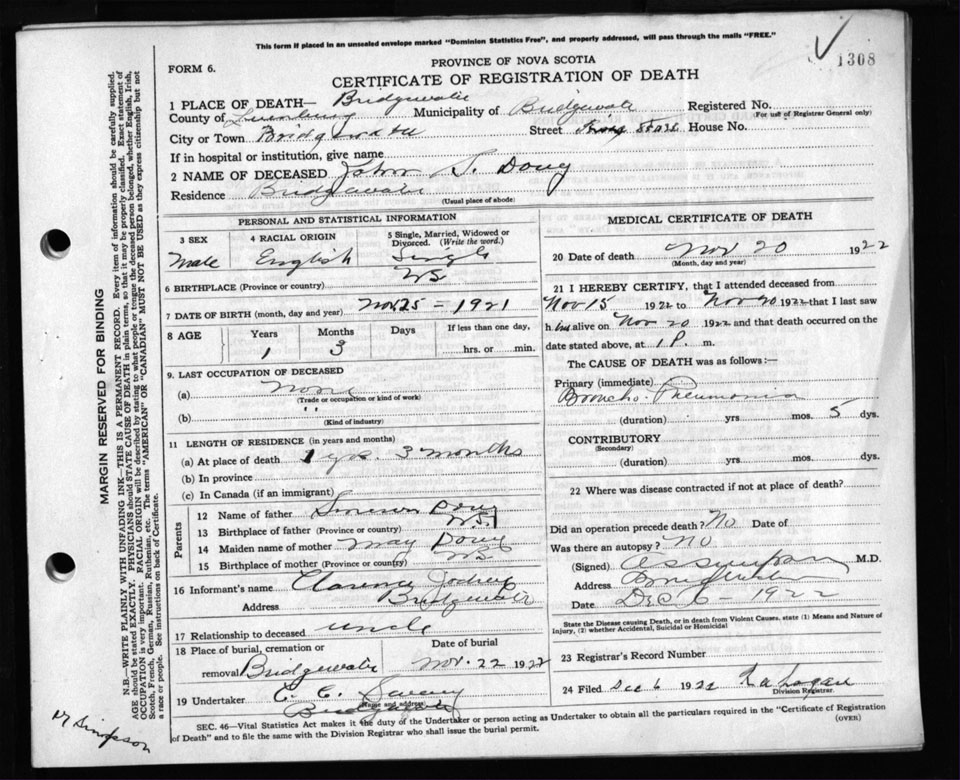 This form if placed in an unsealed envelope marked "Dominion Statistics Free", and properly addressed, will pass through the mails "FREE."
1308
FORM 6.
PROVINCE OF NOVA SCOTIA
CERTIFICATE OF REGISTRATION OF DEATH
1 PLACE OF DEATH— Bridgewater
County of Lunenburg Municipality of Bridgewater Registered No.
(For use of Registrar General only)
City or Town Bridgewater Street House No.
If in hospital or institution, give name
2 NAME OF DECEASED John S. Doug
Residence Bridgewater
(Usual place of abode)
PERSONAL AND STATISTICAL INFORMATION
3 SEX 4 RACIAL ORIGIN 5 Single, Married, Widowed or Divorced. (Write the word.)
Male English Single
6 BIRTHPLACE (Province or country) NS
7 DATE OF BIRTH (month, day and year) Nov 25 - 1921
8 AGE Years Months Days If less than one day,
1 3 hrs. or min.
9. LAST OCCUPATION OF DECEASED
(a) None
(Trade or occupation or kind of work)
(b) "
(Kind of industry)
11 LENGTH OF RESIDENCE (in years and months)
(a) At place of death 1 yr. 3 months
(b) In province
(c) In Canada (if an immigrant)
Parents
12 Name of father Simeon
13 Birthplace of father (Province or country) N.S.
14 Maiden name of mother May Doug
15 Birthplace of mother (Province or country) NS
16 Informant's name Clarence
Address Bridgewater
17 Relationship to deceased uncle
18 Place of burial, cremation or removal Bridgewater Date of burial Nov. 22 1922
19 Undertaker C. C.
(Name and address)
Bridgewater
MEDICAL CERTIFICATE OF DEATH
20 Date of death Nov 20 1922
(Month, day and year)
21 I HEREBY CERTIFY, that I attended deceased from
Nov 15 1922 to Nov 20 1922 that I last saw
h im alive on Nov 20 1922 and that death occurred on the
date stated above, at 1 P. m.
The CAUSE OF DEATH was as follows:—
Primary (immediate)
Broncho. Pneumonia
(duration) yrs mos. 5 dys.
CONTRIBUTORY
(Secondary)
(duration) yrs mos. dys.
22 Where was disease contracted if not at place of death?
Did an operation precede death? No Date of
Was there an autopsy? No
(Signed) M.D.
Address Bridgewater
Date Dec 6 - 1922
State the Disease causing Death, or in death from Violent Causes, state (1) Means and Nature of
Injury, (2) whether Accidental, Suicidal or Homicidal
23 Registrar's Record Number
24 Filed Dec 6 1922
Division Registrar.
SEC. 46—Vital Statistics Act makes it the duty of the Undertaker or person acting as Undertaker to obtain all the particulars required in the "Certificate of Registration
of Death" and to file the same with the Division Registrar who shall issue the burial permit.
(OVER)
MARGIN RESERVED FOR BINDING
N.B.—WRITE PLAINLY WITH UNFADING INK—THIS IS A PERMANENT RECORD. Every item of information should be carefully supplied.
AGE should be stated EXACTLY. PHYSICIANS should STATE CAUSE OF DEATH in plain terms, so that it may be properly classified. Exact statement of
OCCUPATION is very important. RACIAL ORIGIN will be described by stating to what people or tongue the deceased person belonged, whether English, Irish,
Scotch, French, German, Russian, Ruthenian, etc. The terms "AMERICAN" OR "CANADIAN" MUST NOT BE USED as they express citizenship but not
a race or people. See instructions on back of Certificate.
Dr Simpson